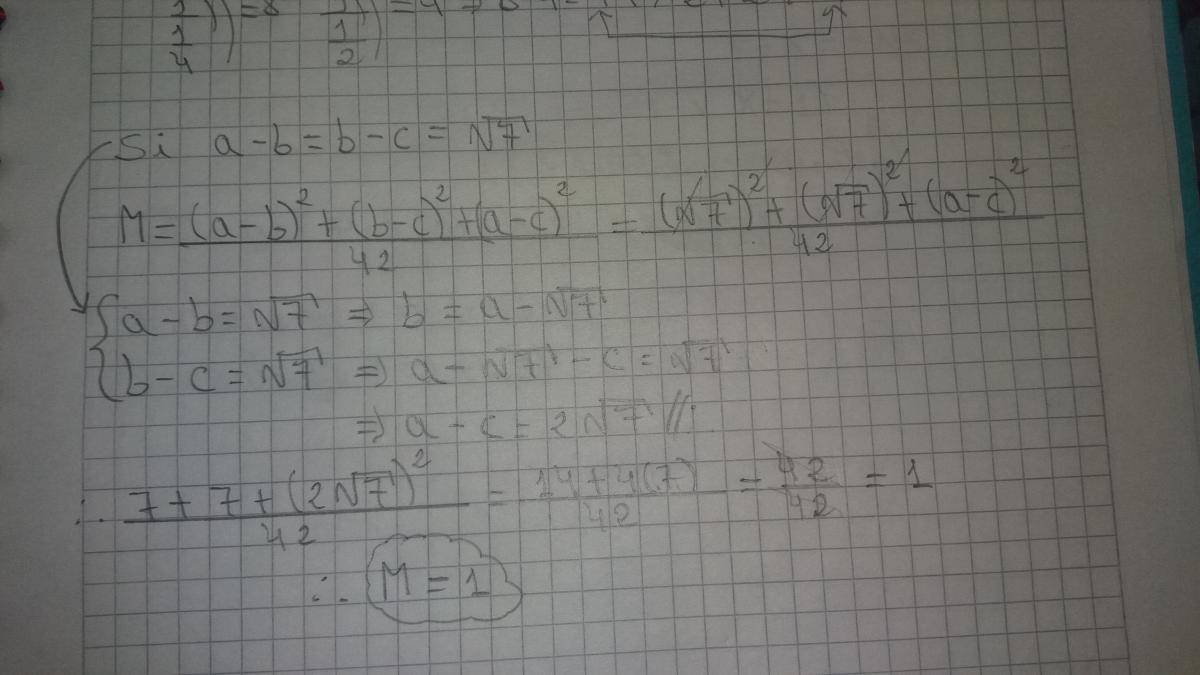 1/4)) = 8 1/2)) = 4
Si a - b = b - c = √7
M = ((a-b)² + (b-c)² + (a-c)²)/42 = ((√7)² + (√7)² + (a-c)²)/42
{ a - b = √7 ⇒ b = a - √7
{ b - c = √7 ⇒ a - √7 - c = √7
⇒ a - c = 2√7 //.
∴ (7 + 7 + (2√7)²)/42 = (14 + 4(7))/42 = 42/42 = 1
∴ M = 1